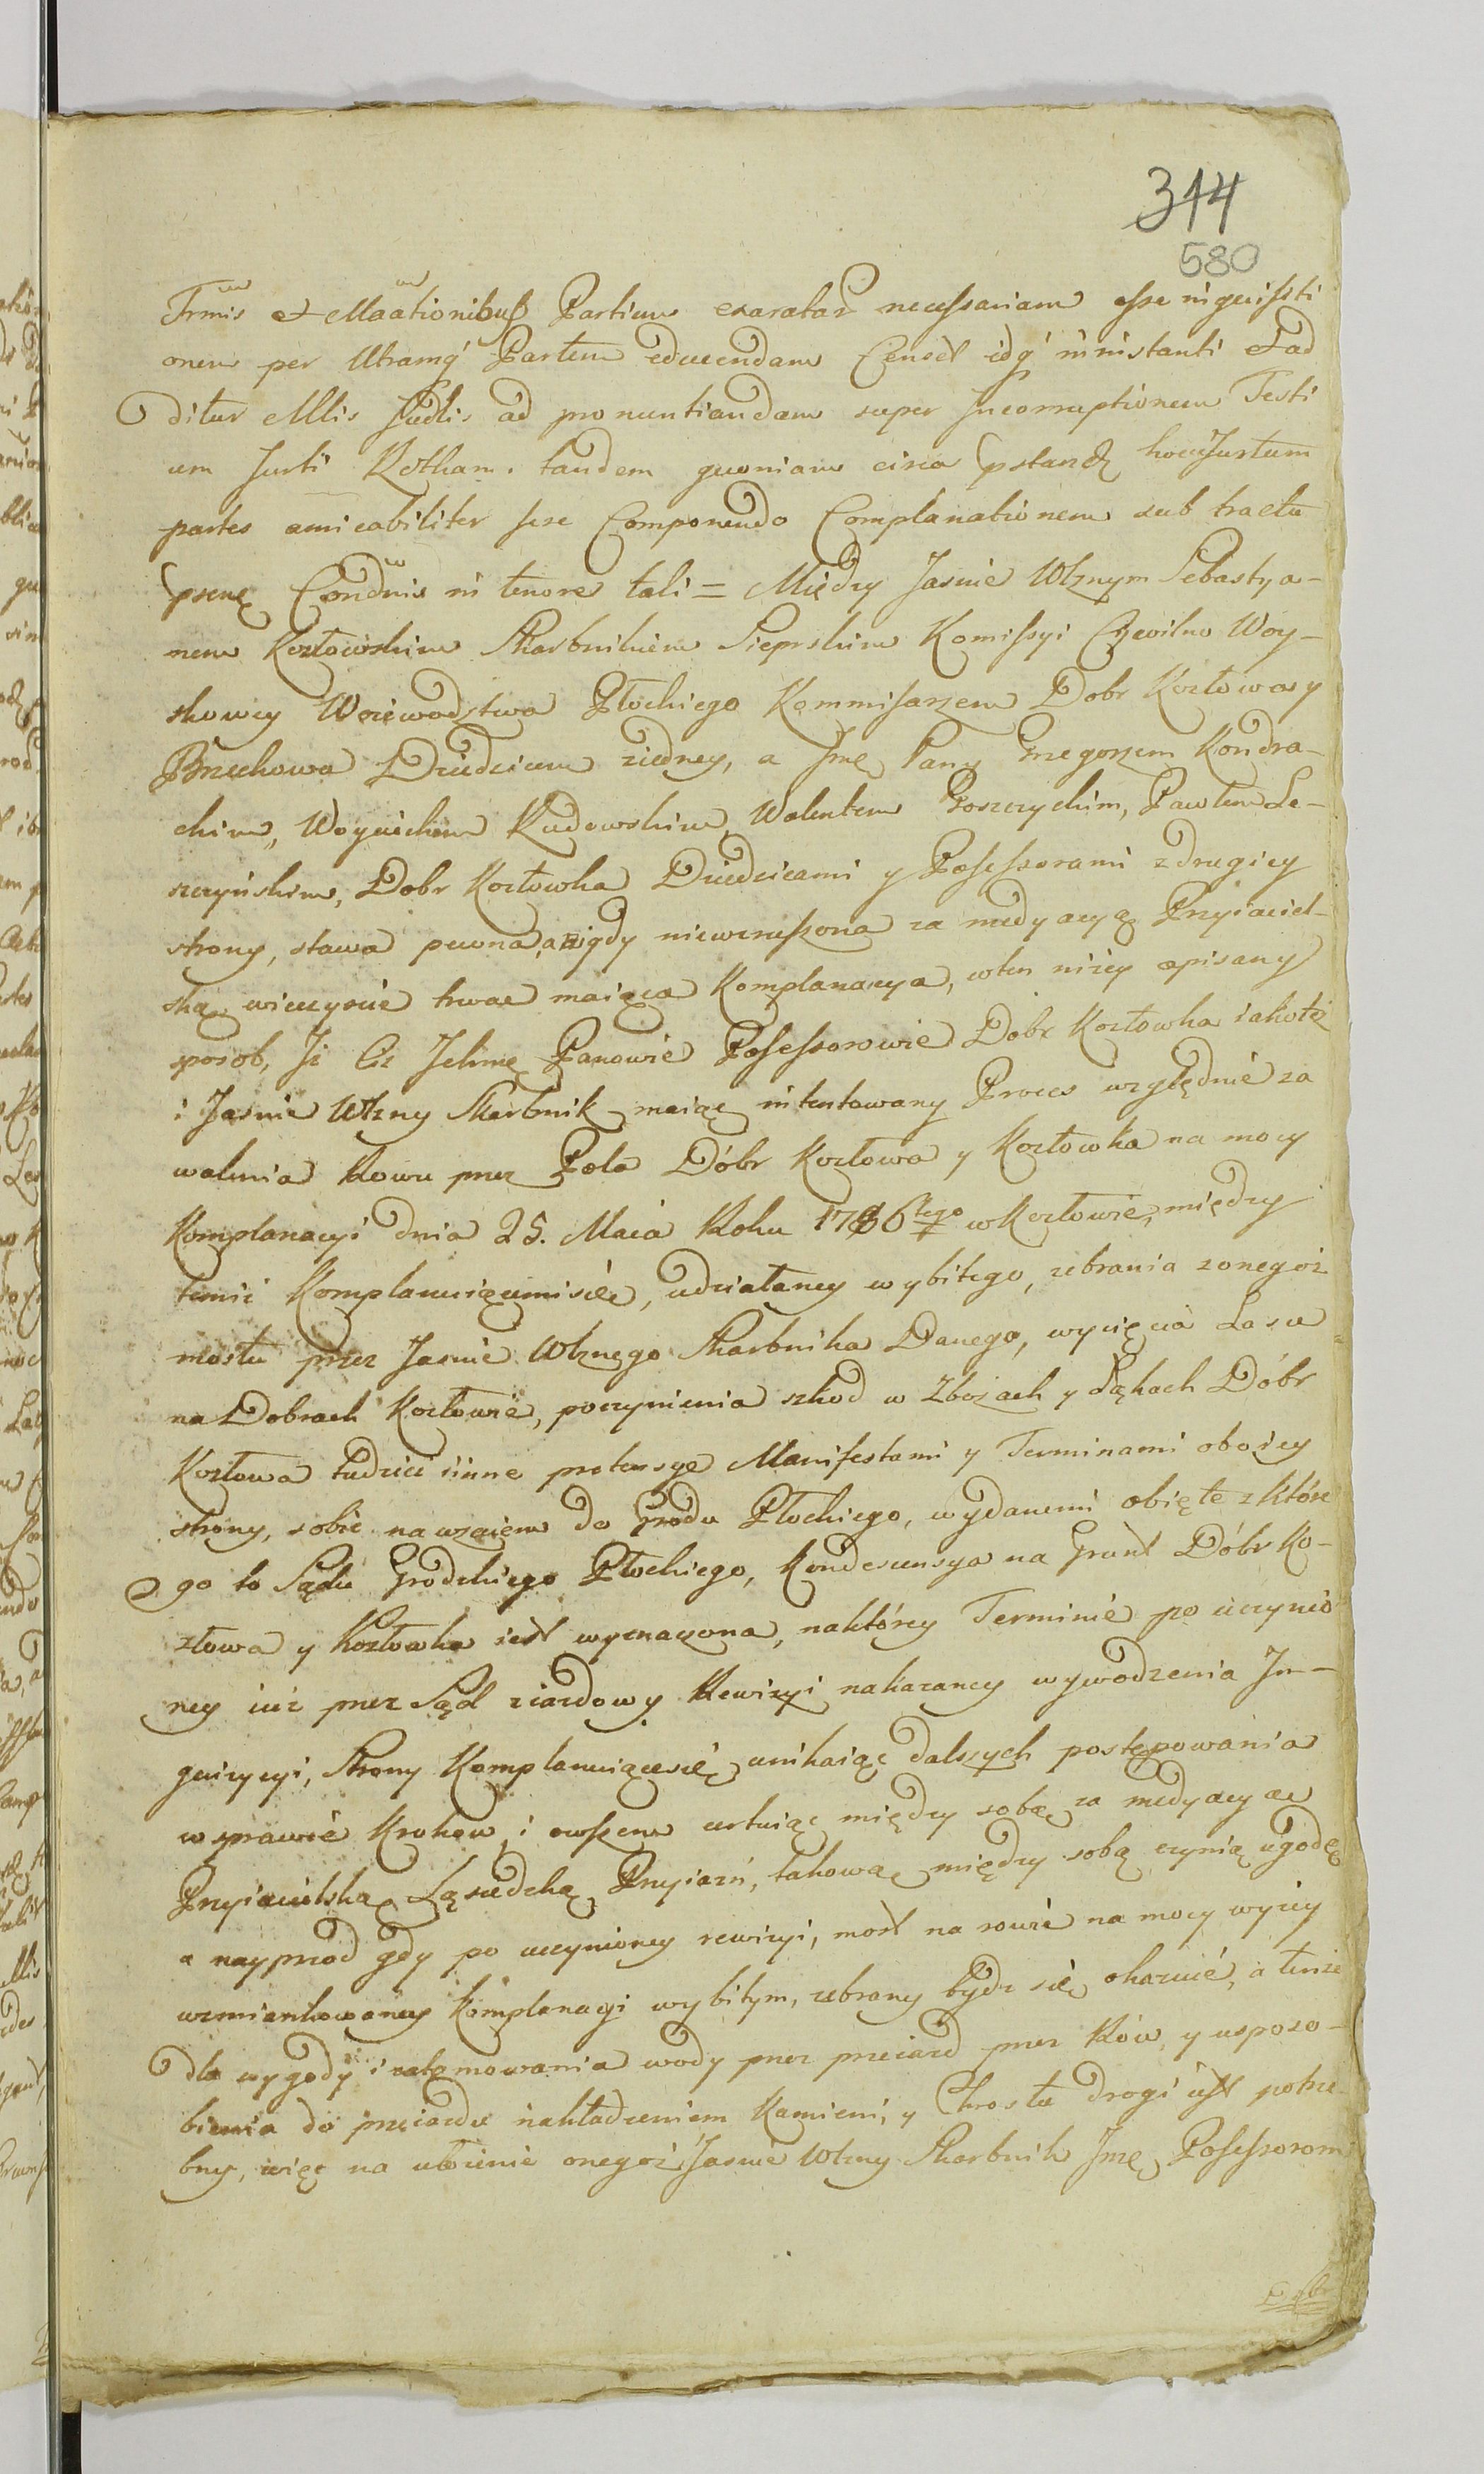 314
580
Trmis et Maationibus Partium exaratas necessariam esse inquisiti
onem per Utramq Partem educendam Censet idq in instanti et ad
ditur Mlis Judlis ad pronuntiandam super Incorruptionem Testi
um Jurti Rotham. tandem quoniam circa pstand hocce Justum
partes amicabiliter sese Componendo Complanationem sub tractu
psens Condnis in tenore tali = Między Jasnie Wlznym Sebastya-
nem Kozłowskim Skarbnikiem Sieprskim Komissyi Cywilno Woy-
skowey Woiewodztwa Płockiego Kommisarzem Dobr Kozłowa y
Brzechowa Dziedzicem ziedney, a Jmę Pany Grzegorzem Kondra-
ckim, Woyciechem Rudowskim, Walentem Goszczyckim, Pawłem Le-
szczyńskim, Dobr Kozłowka Dziedzicami y Possessorami z drugiey
strony, stawa pewna, a nigdy niewzruszona za medyacyą Przyiaciel-
ską, wieczyscie trwać maiąca Komplanacya, w ten niżey opisany
sposob, Jż Ciż Jchmę Panowie Possessorowie Dobr Kozłowka iakoteż
i Jasnie Wlzny Skarbnik maiąc intentowany Proces względnie za
walenia Rowu przez Pola Dóbr Kozłowa y Kozłowka na mocy
Komplanacyi dnia 25. Maia Roku 1786tego w Kozłowie, między
temiż Komplanuiącemisię, udziałaney wybitego, zebrania z onegoż
mostu przez Jasnie Wlznego Skarbnika Danego, wycięcia Lasu
na Dobrach Kozłowie, poczynienia szkod w Zbożach y Łąkach Dóbr
Kozłowa tudzież iinne pretensye Manifestami y Terminami oboiey
strony, sobie nawzaiem do Grodu Płockiego, wydanemi obięte z które
go to Sądu Grodzkiego Płockiego, Kondescensya na Grunt Dóbr Ko-
złowa y Kozłowka iest wyznaczona, naktórey Terminie po uczynio
ney iuż przez Sąd ziazdowy Rewizyi nakazaney wywodzenia In-
quizycyi, Strony Komplanuiącesię, unikaiąc dalszych postępowania
w sprawie Krokow, i owszem certuiąc między sobą za medyacyą
Przyiacielską Sąsiedzką Przyiazń, takową między sobą czynią ugodę
a nayprzod gdy po uczynioney rewizyi, most na rowie na mocy wyżey
wzmiankowaney Komplanacyi wybitym, zebrany bydz się okazuie, a tenże
dla wygody i zatamowania wody przez przeiazd przez Rów, y usposo-
bienia do przeiazdu nakładzeniem Kamieni, y Chrostu drogi iest potrze-
bny, więc na ułożenie onegoż Jasnie Wlzny Skarbnik Jmę Possessorom